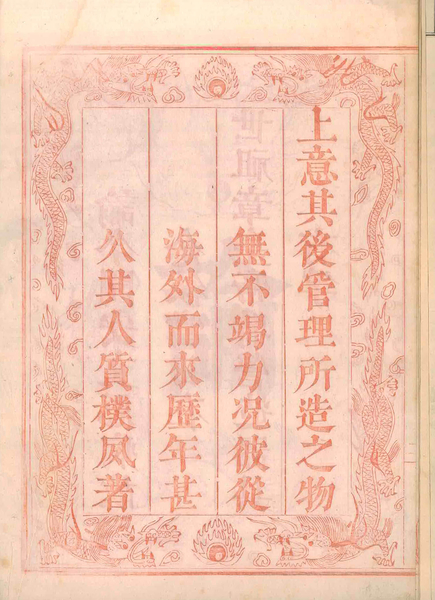 上意其後管理所造之物
無不竭力况彼從
海外而來歷年甚
久其人質樸夙著